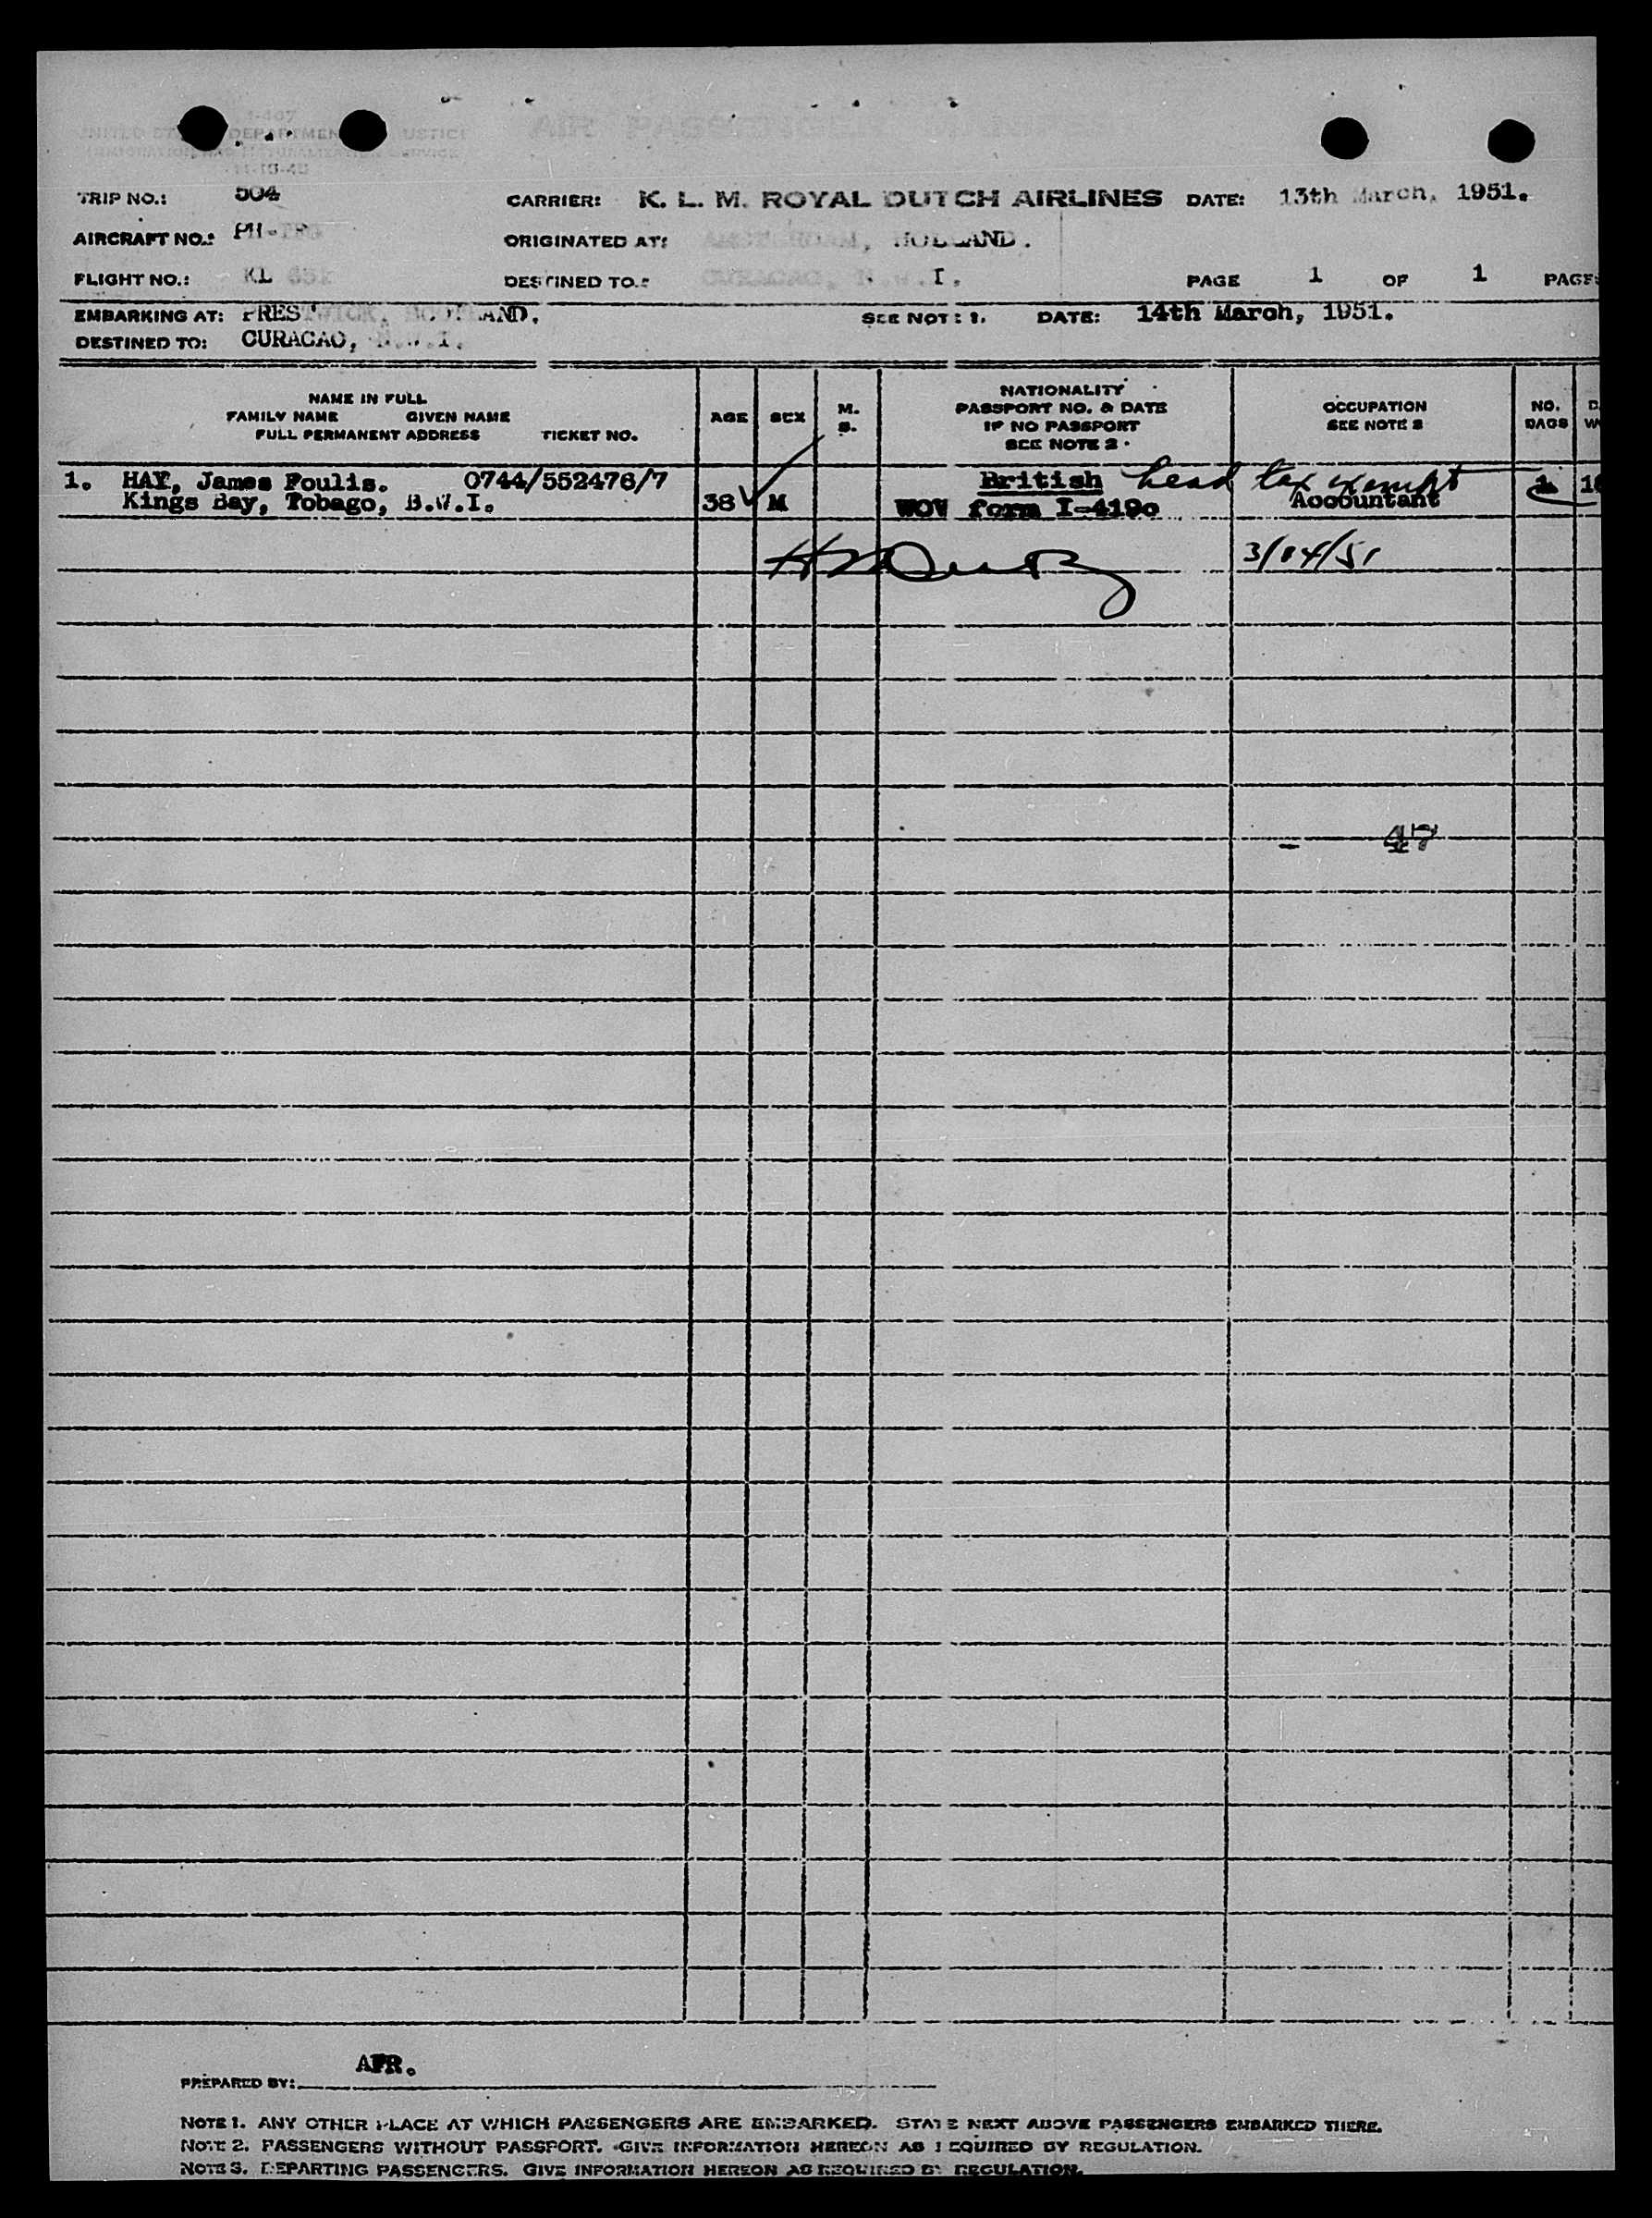 I-407
UNITED STATES DEPARTMENT OF JUSTICE
IMMIGRATION AND NATURALIZATION SERVICE
AIR PASSENGER
TRIP NO.: 504 CARRIER: K. L. M. ROYAL DUTCH AIRLINES DATE: 13th March, 1951.
AIRCRAFT NO.: PH- ORIGINATED AT: AMSTERDAM, HOLLAND.
FLIGHT NO.: KL DESTINED TO: CURACAO, N.W.I. PAGE 1 OF 1 PAGE
EMBARKING AT: PRESTWICK, SCOTLAND. SEE NOTE 1. DATE: 14th March, 1951.
DESTINED TO: CURACAO, N.W.I.
NAME IN FULL
FAMILY NAME GIVEN NAME
FULL PERMANENT ADDRESS TICKET NO.
AGE SEX M. S.
NATIONALITY
PASSPORT NO. & DATE
IF NO PASSPORT
SEE NOTE 2
OCCUPATION
SEE NOTE 2
NO.
BAGS
1. HAY, James Foulis. 0744/552476/7 British head tax exempt
Kings Bay, Tobago, B.W.I. 38 M WOV form I-419c Accountant 1 1
3/14/51
- 47
AFR.
PREPARED BY:
NOTE 1. ANY OTHER PLACE AT WHICH PASSENGERS ARE EMBARKED. STATE NEXT ABOVE PASSENGERS EMBARKED THERE.
NOTE 2. PASSENGERS WITHOUT PASSPORT. GIVE INFORMATION HEREON AS REQUIRED BY REGULATION.
NOTE 3. DEPARTING PASSENGERS. GIVE INFORMATION HEREON AS REQUIRED BY REGULATION.